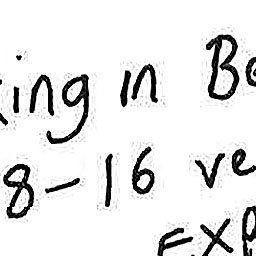 king in Be
8-16 ve
EXP